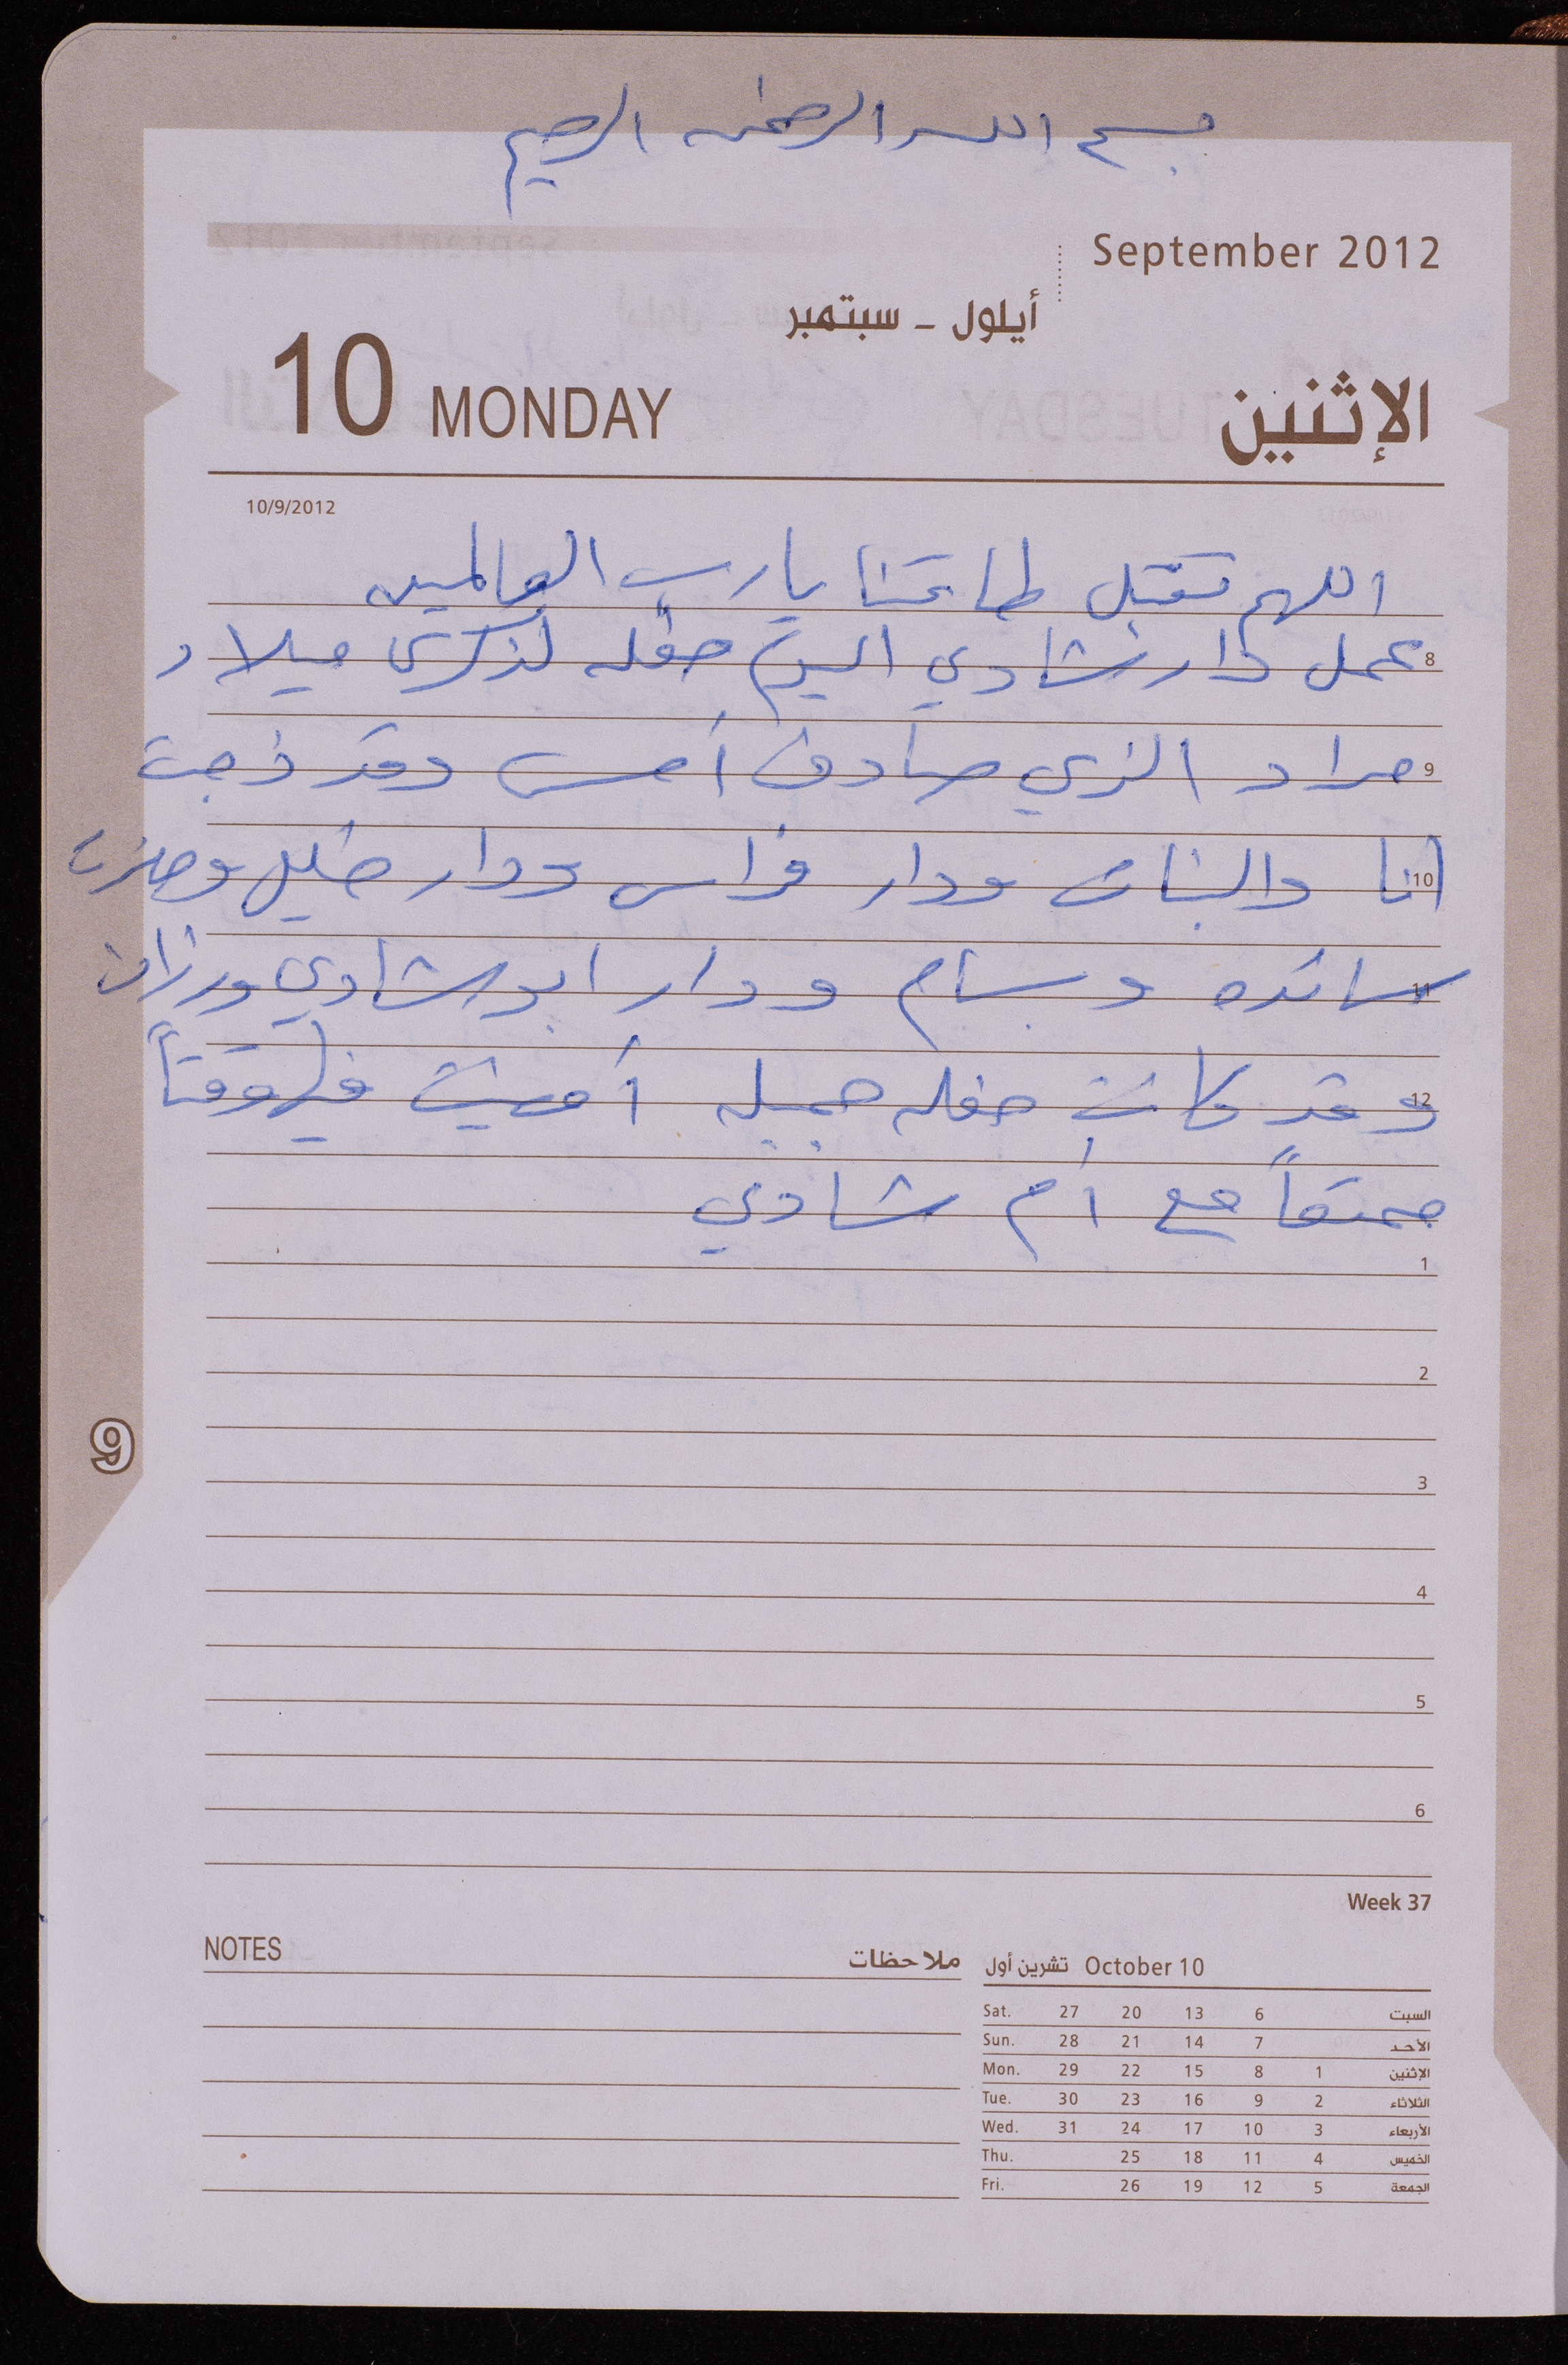 بسم الله الرحمن الرحيم
September 2012
أيلول - سبتمبر
10 MONDAY الإثنين
10/9/2012
اللهم تقبل طاعتنا يا رب العالمين
8 عمل دار شادي اليوم حفله لذكرى ميلاد
9 مراد الذي صادف أمس وقد ذهبت
10 انا والبنات ودار فراس ودار خليل وحضرت
11 سائده وبسام ودار ابو شادي ورزان
12 وقد كانت حفله جميله أمضيت فيها وقتاً
ممتعاً مع أم شادي
1
2
3
9
4
5
6
Week 37
NOTES ملاحظات
تشرين أول October 10
Sat. 27 20 13 6 السبت
Sun. 28 21 14 7 الأحد
Mon. 29 22 15 8 1 الإثنين
Tue. 30 23 16 9 2 الثلاثاء
Wed. 31 24 17 10 3 الأربعاء
Thu. 25 18 11 4 الخميس
Fri. 26 19 12 5 الجمعة